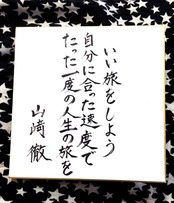 いい旅をしよう
自分に合った速度で
たった一度の人生の旅を
山崎徹